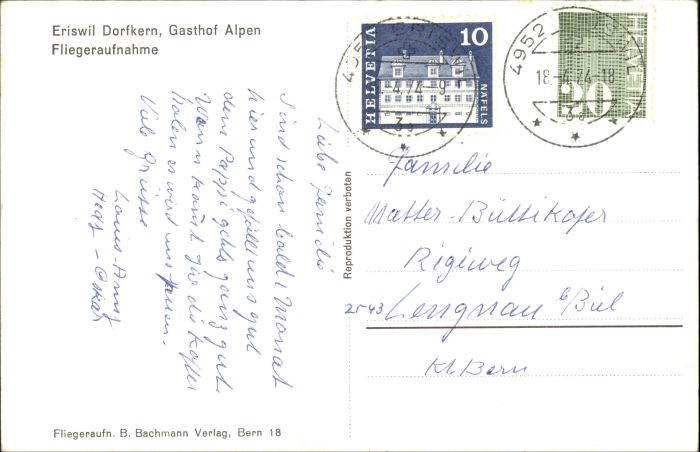 Eriswil Dorfkern, Gasthof Alpen
Fliegeraufnahme
HELVETIA
10
NÄFELS
4952 ERISWIL
.4.74-9
3a
4952 ERISWIL
18.-4.74-18
3a
HELVETIA
20
Liebe Familie
Sind schon bald 1 Monat
hier und gefällts uns gut
dem Pappi gehts ganz gut.
Wann kommt Ihr die Koffer
holen es wird uns freuen.
Viele Grüsse
Louis-Anny
Hedy - Oskar
Reproduktion verboten
Familie
Matter-Büttikofer
Rigiweg
2543 Lengnau b/Biel
Kt. Bern
Fliegeraufn. B. Bachmann Verlag, Bern 18